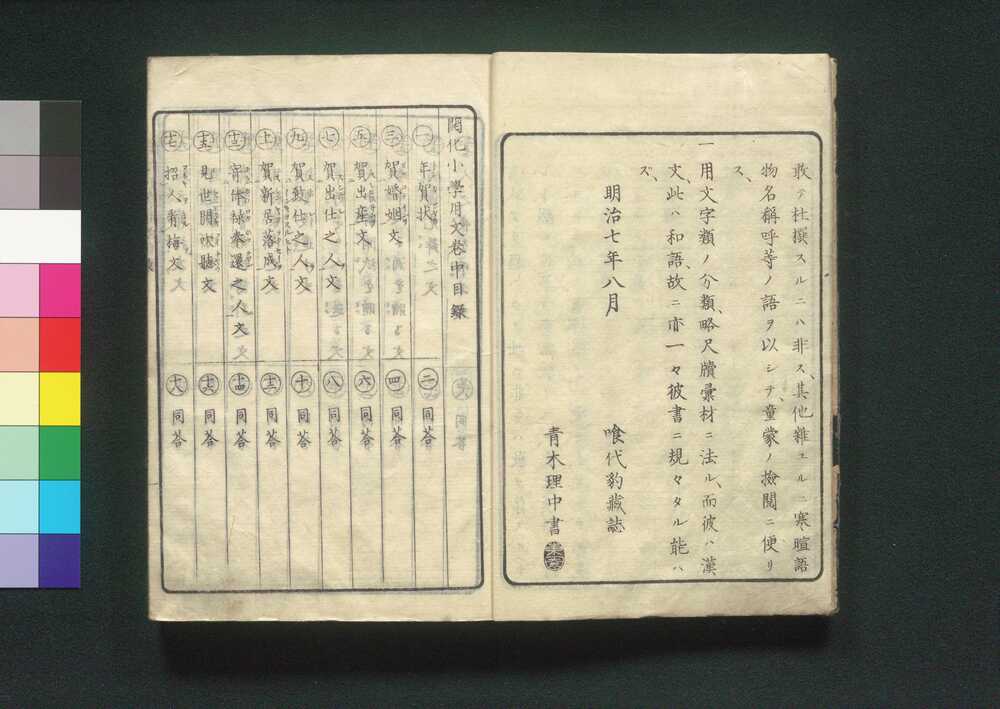 敢テ杜撰スルニハ非ス、其他雜ユルニ寒暄語
物名稱呼等ノ語ヲ以シテ、童蒙ノ撿閲ニ便リ
ス、
一用文字類ノ分類略尺牘彙材ニ法ル、而彼ハ漢
文、此ハ和語、故ニ亦一々彼書ニ規々タル能ハ
ズ、
明治七年八月
喰代豹藏誌
青木理中書
開化小學用文卷中目錄
一 年賀状
二 同答
三 賀婚姻文
四 同答
五 賀出産文
六 同答
七 賀出仕之人文
八 同答
九 賀致仕之人文
十 同答
十一 賀新居落成文
十二 同答
十三 家禄奉還之人文
十四 同答
十五 見世開吹聽文
十六 同答
十七 招人看梅文
十八 同答